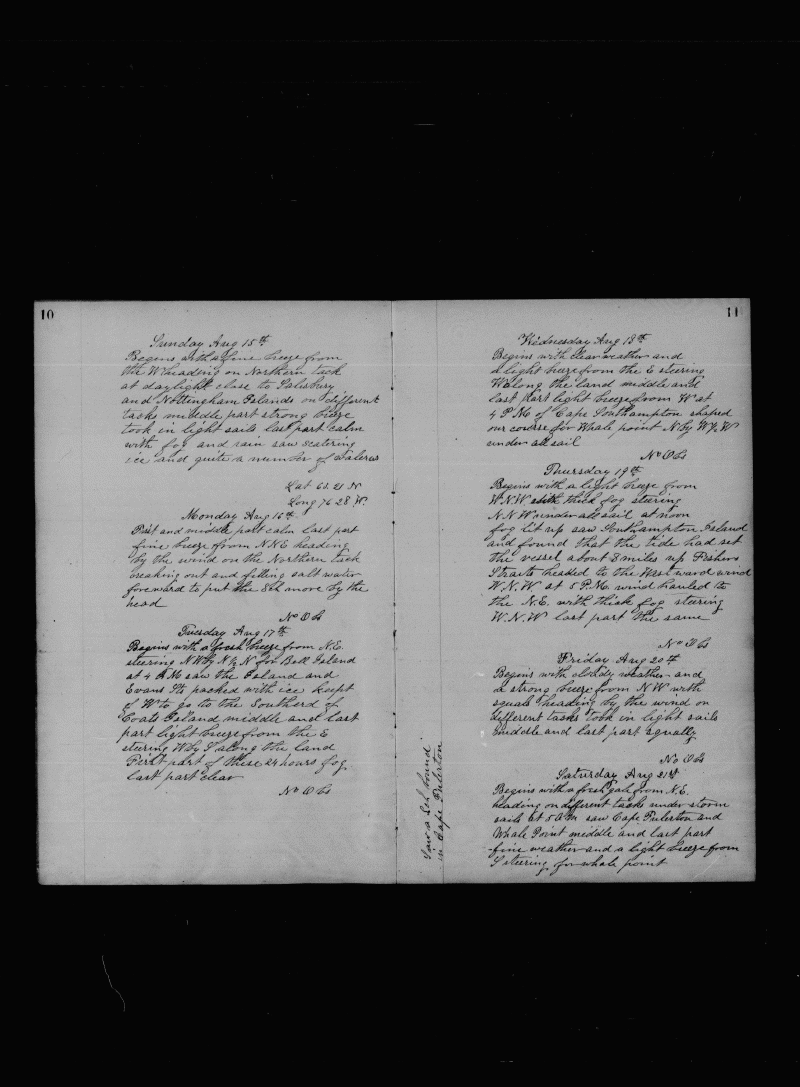 10
Sunday Aug 15th
Begins with a fine breeze from
the W heading on Northern tack
at daylight close to Salsbury
and Nottingham Islands on different
tacks middle part strong breeze
took in light sails last part calm
with fog and rain saw scatering
ice and quite a number of
Lat 63 21 N
Long 76 28 W.
Monday Aug 16th
First and middle part calm last part
fine breeze from N.N.E heading
by the wind on the Northern tack
breaking out and filling salt water
forward to put the Sch more by the
head
No Obs
Tuesday Aug 17th
Begins with a fresh breeze from N.E.
steering N W by N ½ N for Bell Island
at 4 AM saw the Island and
Evans Sts packed with ice keept
of W to go to the Southerd of
Coats Island middle and last
part light breeze from the E
steering W by S along the land
First part of these 24 hours fog
last part clear
No Obs
11
Wednesday Aug 18th
Begins with clear weather and
a light breeze from the E steering
W along the land middle and
last part light breeze from W at
4 P.M. of Cape Southampton shaped
our course for Whale point N by W ½ W
under all sail
No Obs
Thursday 19th
Begins with a light breeze from
W.N.W with thick fog steering
N.N.W under all sail at noon
fog lit up saw Southampton Island
and found that the tide had set
the vessel about 8 miles up Fishers
Straits headed to the Westward wind
W.N.W at 5 P.M. wind hauled to
the N.E. with thick fog steering
W.N.W last part the same
No Obs
Friday Aug 20th
Begins with cloudy weather and
a strong breeze from N W with
squals heading by the wind on
different tacks took in light sails
middle and last part squally
No Obs
Saturday Aug 21st
Begins with a fresh gale from N.E.
heading on different tacks under storm
sails at 5 A.M. saw Cape Fulerton and
Whale Point middle and last part
fine weather and a light breeze from
S steering for whale point
Saw a Sch bound
in Cape Fulerton